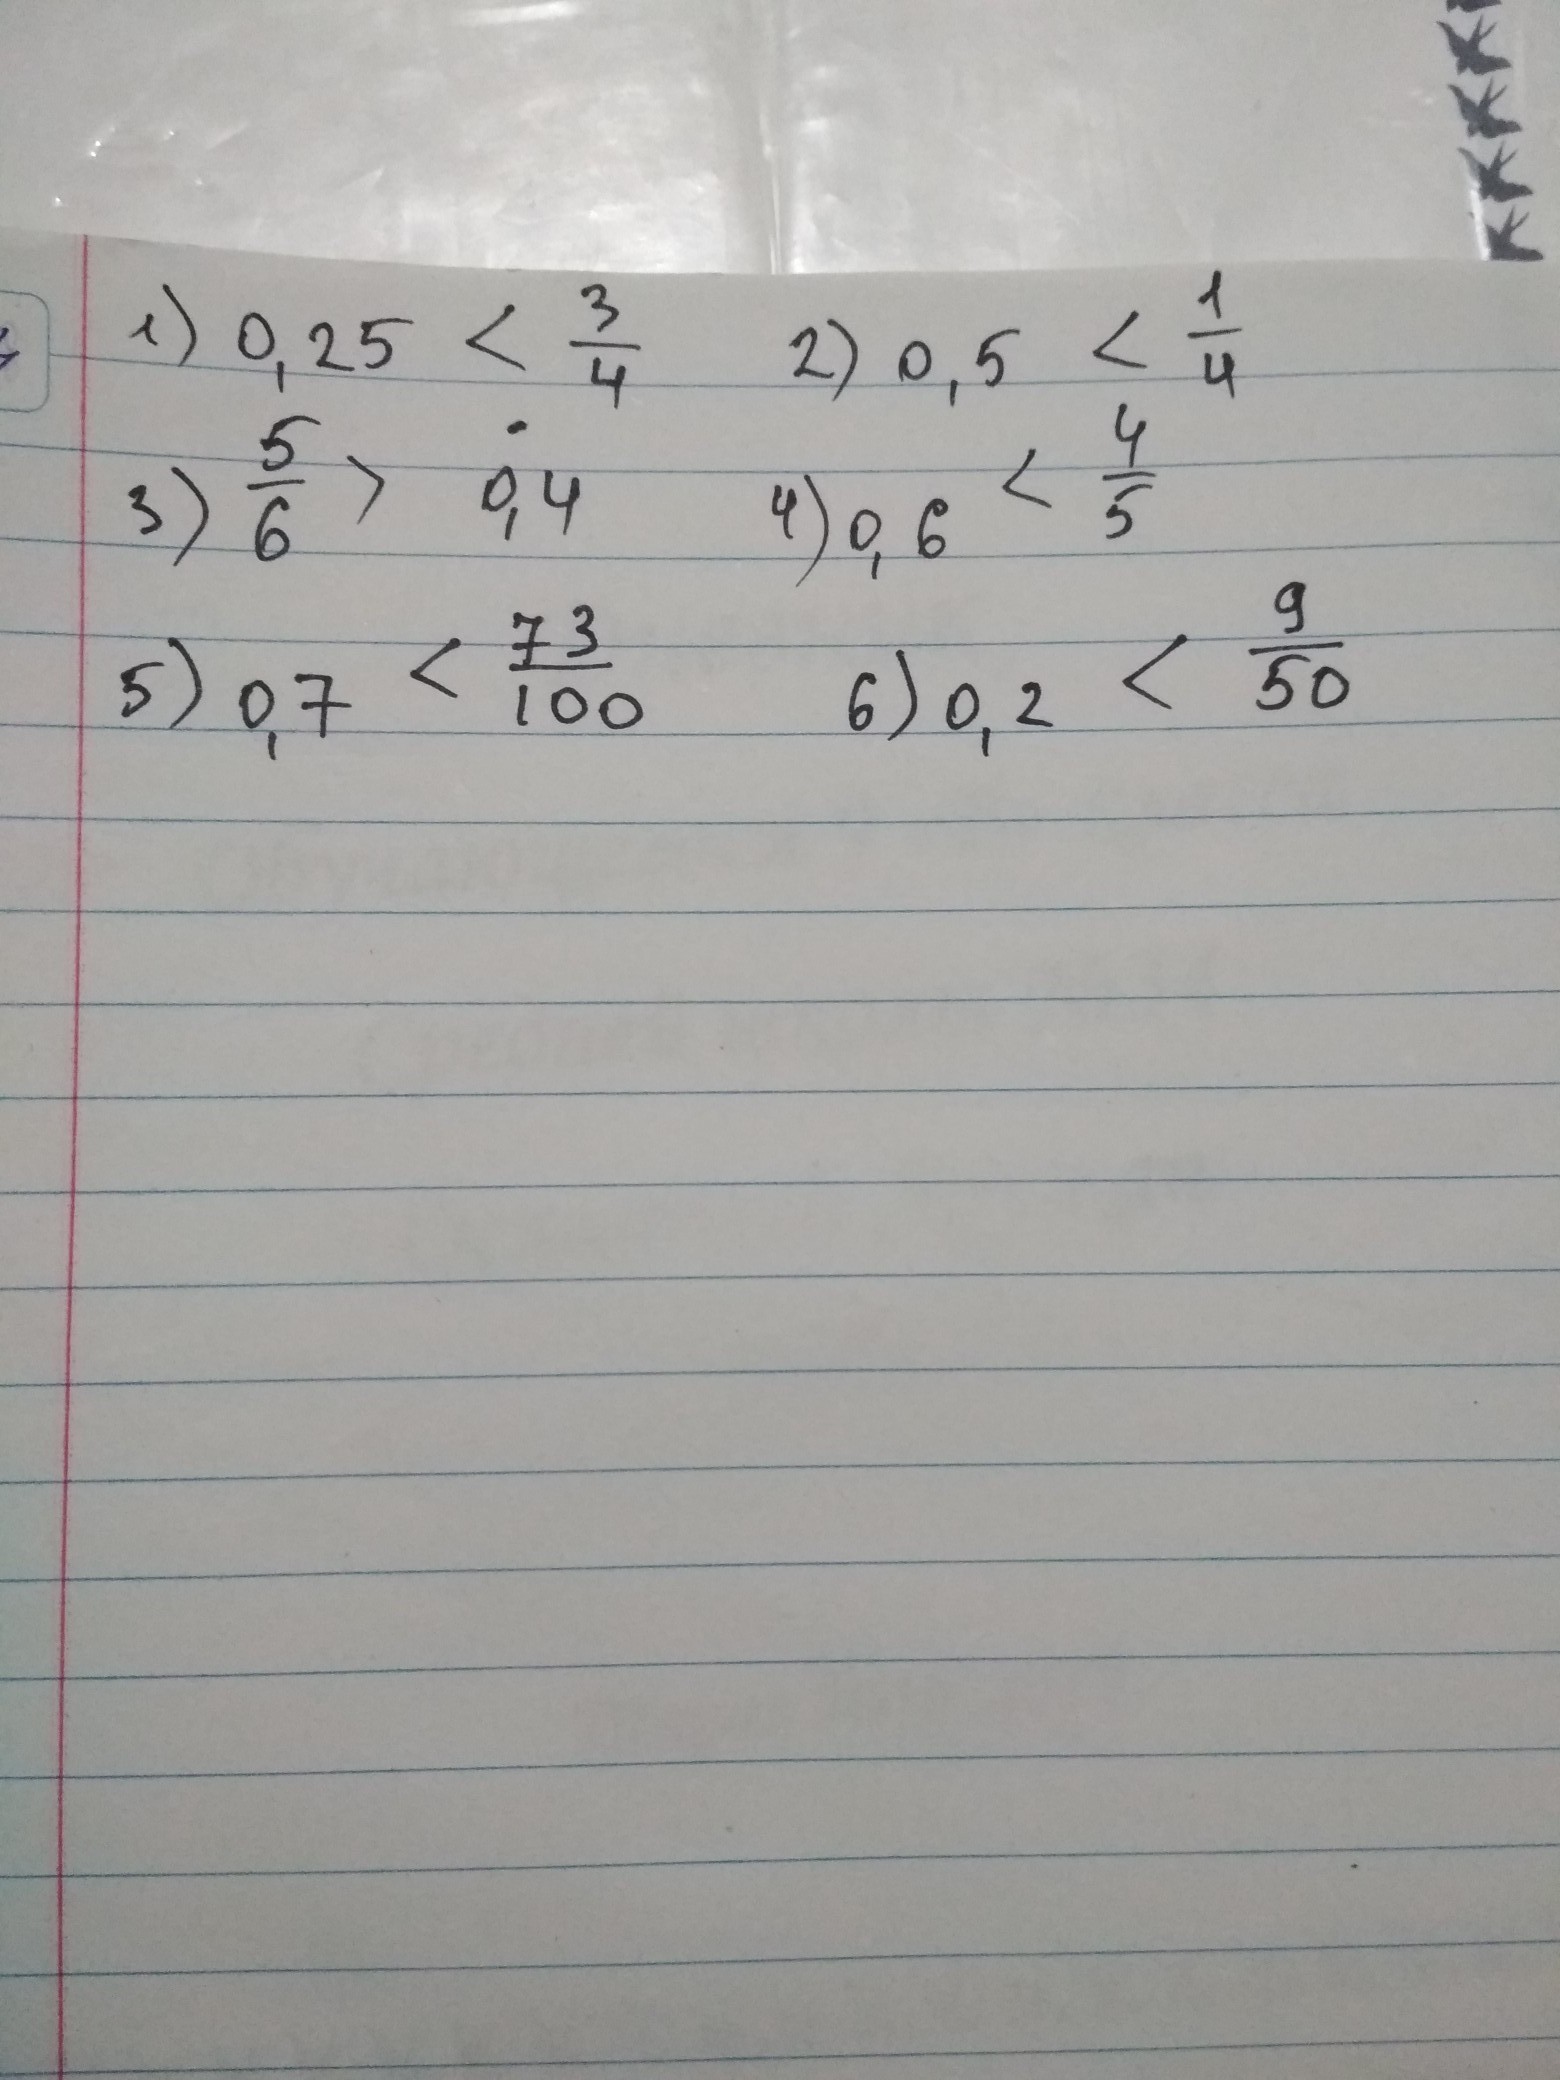 1) 0,25 < 3/4 2) 0,5 < 1/4
3) 5/6 > 0,4 4) 0,6 < 4/5
5) 0,7 < 73/100 6) 0,2 < 9/50